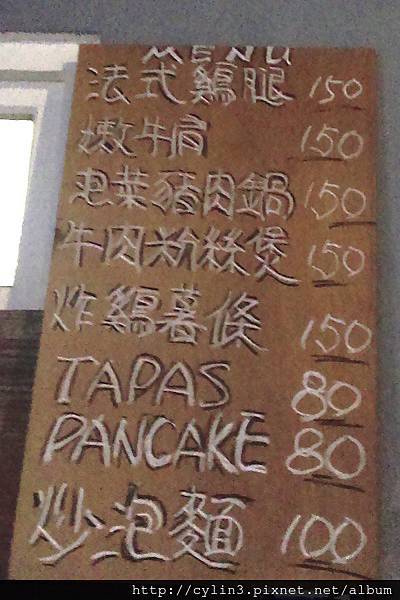 MENU
法式鷄腿 150
嫩牛肩 150
泡菜豬肉鍋 150
牛肉粉絲煲 150
炸鷄薯條 150
TAPAS 80
PANCAKE 80
炒泡麵 100
http://cylin3.pixnet.net/album